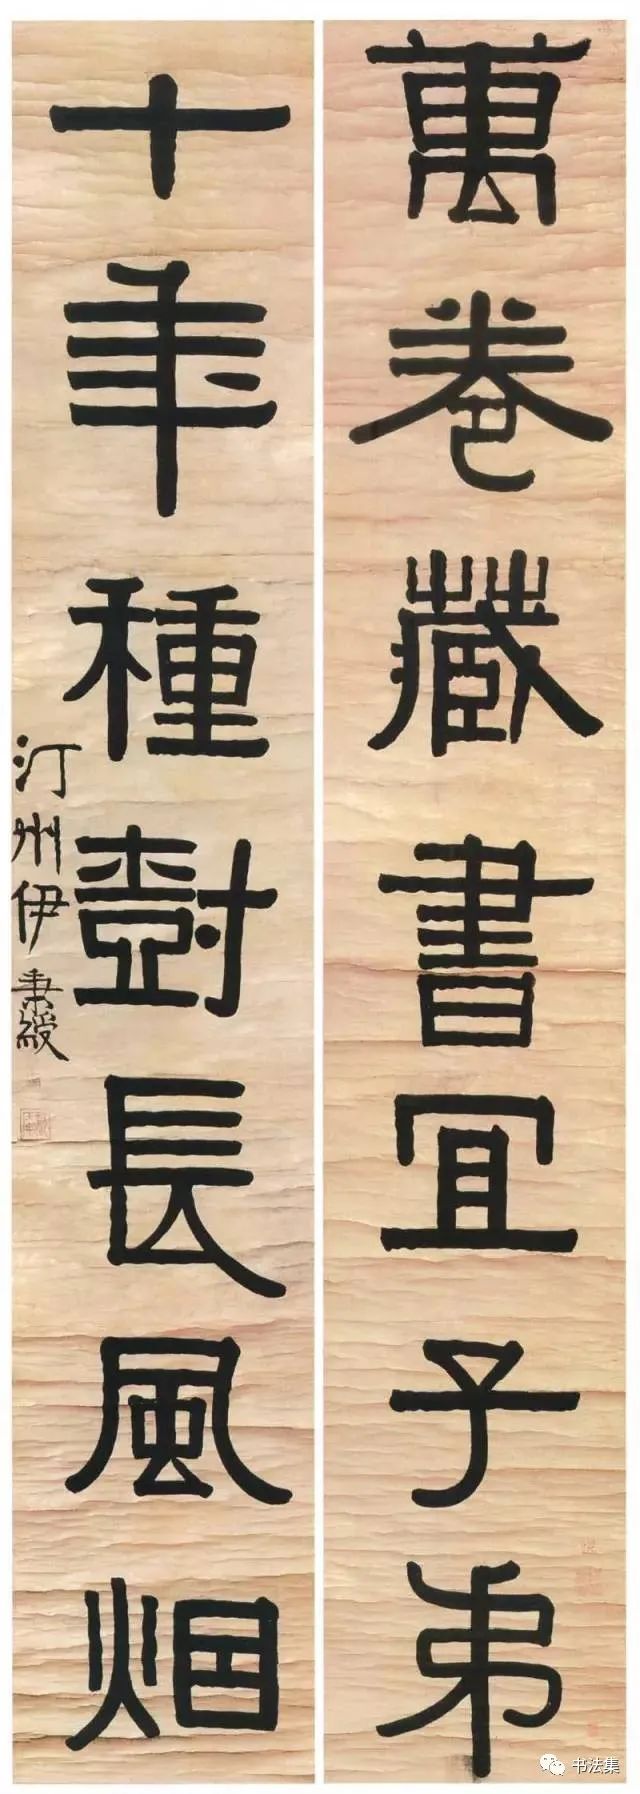 萬卷藏書宜子弟
十年種樹長風烟
汀州伊秉綬
书法集